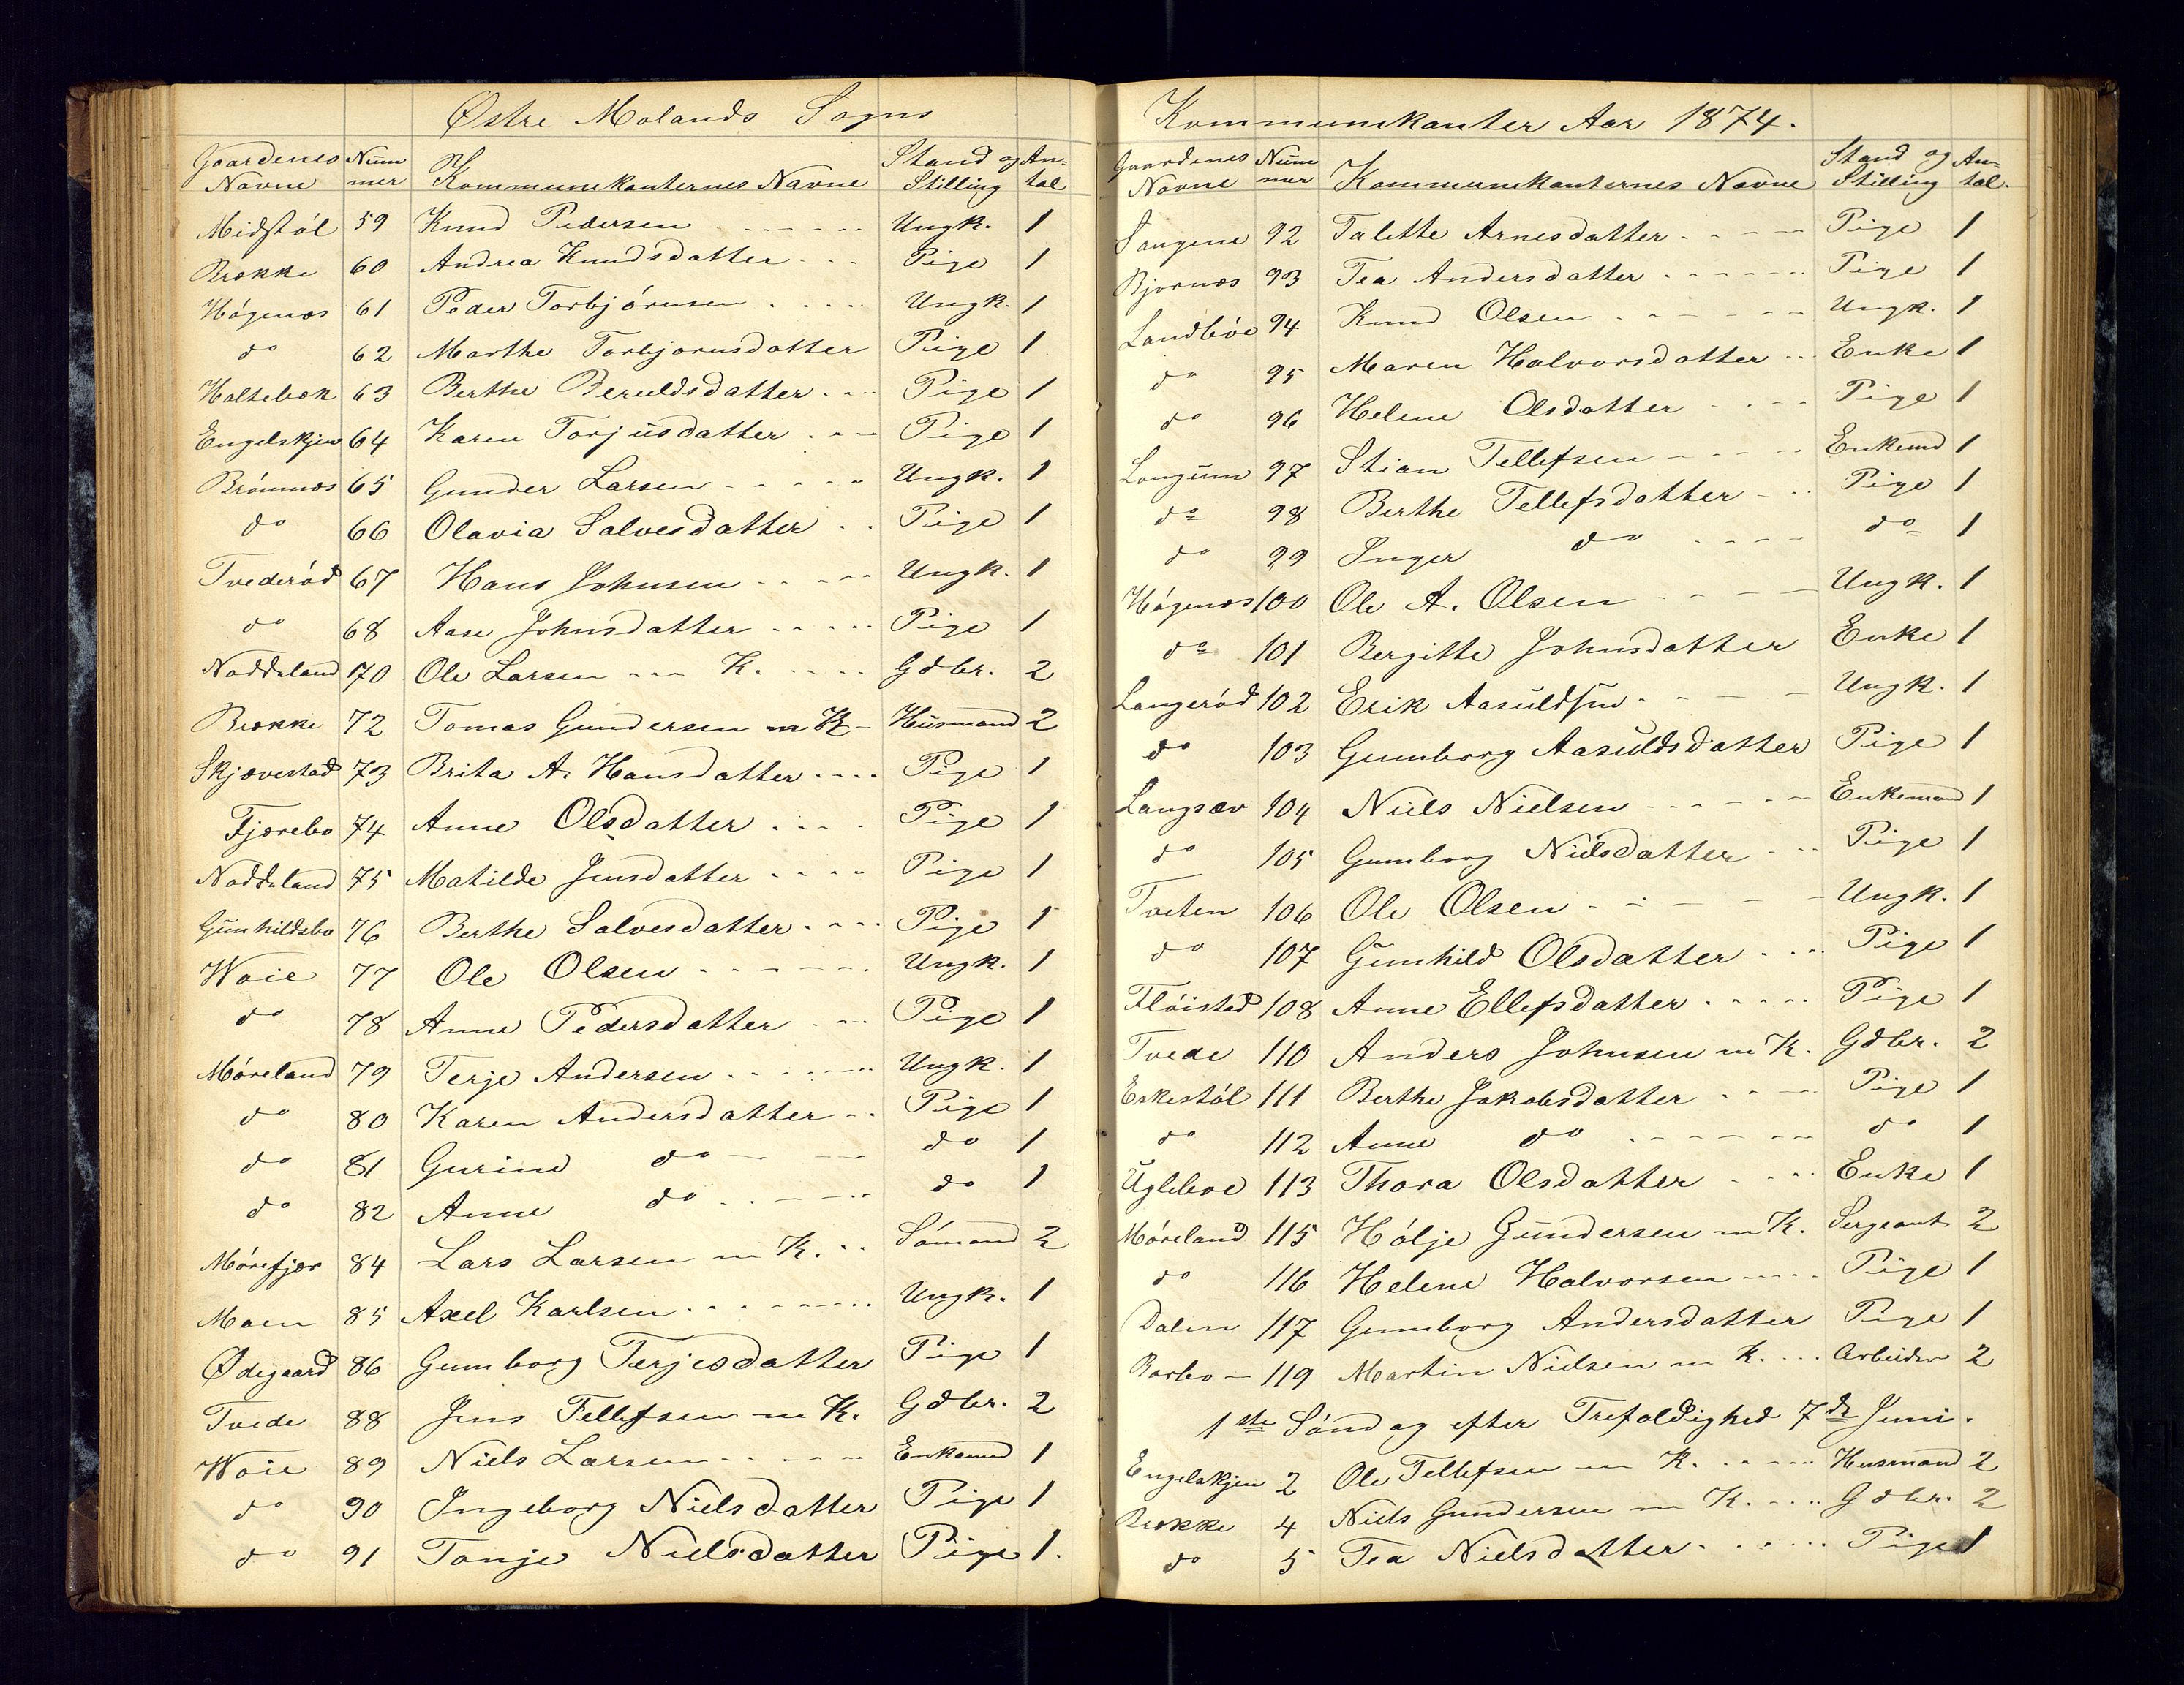 Østre Molands Sogns
Gaardenes Navne Num mer Kommunikanternes Navne Stand og Stilling An- tal
Midstøl 59 Knud Pedersen Ungk. 1
Brække 60 Andrea Knudsdatter Pige 1
Høgenæs 61 Peder Torbjørnsen Ungk. 1
do 62 Marthe Torbjørnsdatter Pige 1
Holtebæk 63 Berthe Beruldsdatter Pige 1
Engelskjøn 64 Karen Torjusdatter Pige 1
Brømnæs 65 Gunder Larsen Ungk. 1
do 66 Olavia Salvesdatter Pige 1
Tvederød 67 Hans Johnsen Ungk. 1
do 68 Aase Johnsdatter Pige 1
Noddeland 70 Ole Larsen m K. Gdbr. 2
Brække 72 Tomas Gundersen m K Husmand 2
Skjævestad 73 Brita A. Hansdatter Pige 1
Fjærebo 74 Anne Olsdatter Pige 1
Noddeland 75 Matilde Jensdatter Pige 1
Gunhildsbo 76 Berthe Salvesdatter Pige 1
Woie 77 Ole Olsen Ungk. 1
do 78 Anne Pedersdatter Pige 1
Møreland 79 Terje Andersen Ungk. 1
do 80 Karen Andersdatter Pige 1
do 81 Gurine do do 1
do 82 Anne do do 1
Mørefjær 84 Lars Larsen m K. Sømand 2
Moen 85 Axel Karlsen Ungk. 1
Ødegaard 86 Gunnborg Terjesdatter Pige 1
Tvede 88 Jens Tellefsen m K. Gdbr. 2
Woie 89 Niels Larsen Enkemd 1
do 90 Ingeborg Nielsdatter Pige 1
do 91 Tonje Nielsdatter Pige 1.
Kommunikanter Aar 1874.
Gaardenes Navne Num mer Kommunikanternes Navne Stand og Stilling An- tal.
Sangene 92 Talette Arnesdatter Pige 1
Bjørnæs 93 Tea Andersdatter Pige 1
Landbøe 94 Knud Olsen Ungk. 1
do 95 Maren Halvorsdatter Enke 1
do 96 Helene Olsdatter Pige 1
Longum 97 Stian Tellefsen Enkemd 1
do 98 Berthe Tellefsdatter Pige 1
do 99 Inger do do 1
Høgenæs 100 Ole A. Olsen Ungk. 1
do 101 Bergitte Johnsdatter Enke 1
Langerød 102 Erik Aasuldsen Ungk. 1
do 103 Gunnborg Aasuldsdatter Pige 1
Langsæv 104 Niels Nielsen Enkemand 1
do 105 Gunnborg Nielsdatter Pige 1
Tveten 106 Ole Olsen Ungk. 1
do 107 Gunhild Olsdatter Pige 1
Fløistad 108 Anne Ellefsdatter Pige 1
Tvede 110 Anders Johnsen m K. Gdbr. 2
Eskestøl 111 Berthe Jakobsdatter Pige 1
do 112 Anne do do 1
Ugleboe 113 Thora Olsdatter Enke 1
Møreland 115 Hølje Gundersen m K. Sergeant 2
do 116 Helene Halvorsen Pige 1
Dalen 117 Gunnborg Andersdatter Pige 1
Barbo 119 Martin Nielsen m K. Arbeider 2
1ste Søndag efter Trefoldighed 7de Juni.
Engelskjøn 2 Ole Tellefsen m K. Husmand 2
Brække 4 Niels Gundersen m K. Gdbr. 2
do 5 Tea Nielsdatter Pige 1